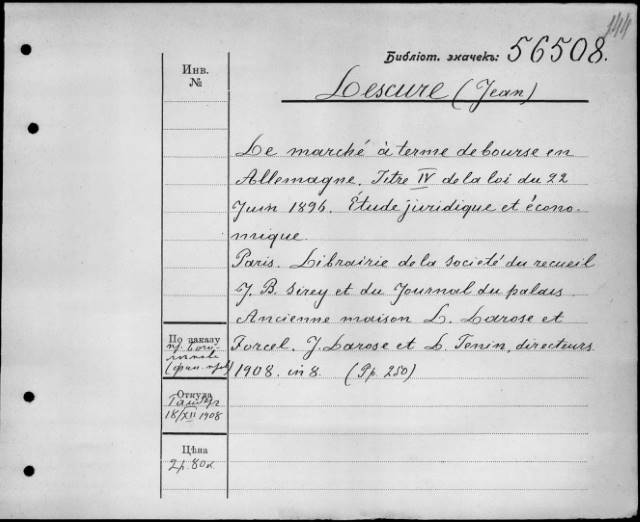 144
Библіот. значекъ: 56508.
Инв.
№
Lescure (Jean)
Le marché à terme de bourse en
Allemagne. Titre IV de la loi du 22
Juin 1896. Étude juridique et écono-
mique.
Paris. Librairie de la Societé du recueil
J. B. Sirey et du Journal du palais.
Ancienne maison L. Larose et
Forcel. J. Larose et L. Tenin, directeurs
1908. in 8. (Pp. 250)
По заказу
Откуда
18/XII 1908
Цѣна
2р. 80к